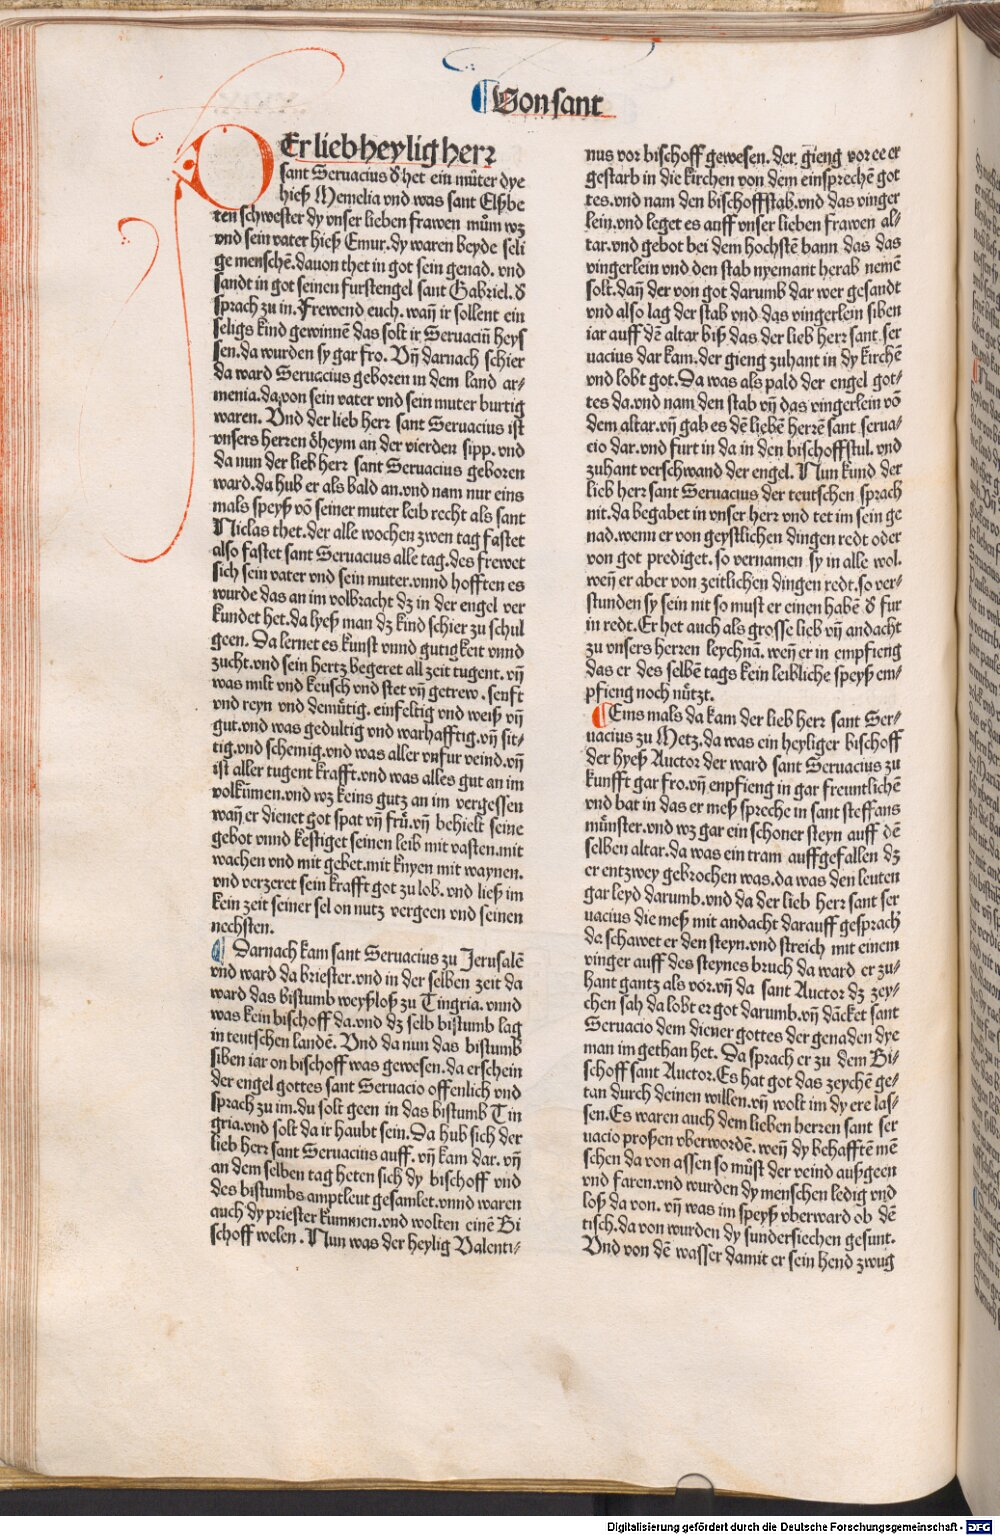 ¶Von sant
DEr lieb heylig herꝛ
sant Seruacius ð het ein můter dye
hieß Memelia vnd was sant Elßbe
ten schwester dy vnser lieben frawen mům wz
vnd sein vater hieß Emur. dy waren beyde seli
ge menschē. dauon thet in got sein genad. vnd
sandt in got seinen furstengel sant Gabriel. ð
sprach zu in. Frewend euch. wañ ir sollent ein
seligs kind gewinnē das solt ir Seruaciū heys
sen. da wurden sy gar fro. Vñ darnach schier
da ward Seruacius geboren in dem land ar⸗
menia. da von sein vater vnd sein muter burtig
waren. Vnd der lieb herꝛ sant Seruacius ist
vnsers herren ðheym an der vierden sipp. vnd
da nun der lieb herꝛ sant Seruacius geboren
ward. da hub er als bald an. vnd nam nur eins
mals speyß vō seiner muter leib recht als sant
Niclas thet. der alle wochen zwen tag fastet
also fastet sant Seruacius alle tag. des frewet
sich sein vater vnd sein muter. vnnd hofften es
wurde das an im volbracht dz in der engel ver
kundet het. da lyeß man dz kind schier zu schul
geen. Da lernet es kunst vnnd gutigkeit vnnd
zucht. vnd sein hertz begeret all zeit tugent. vñ
was milt vnd keusch vnd stet vñ getrew. senft
vnd reyn vnd demůtig. einfeltig vnd weiß vñ
gut. vnd was gedultig vnd warhafftig. vñ sit⸗
tig. vnd schemig. vnd was aller vnfur veind. vñ
ist aller tugent krafft. vnd was alles gut an im
volkūmen. vnd wz keins gutz an im vergessen
wañ er dienet got spat vñ frů. vñ behielt seine
gebot vnnd kestiget seinen leib mit vasten. mit
wachen vnd mit gebet. mit knyen mit waynen.
vnd verzeret sein krafft got zu lob. vnd ließ im
kein zeit seiner sel on nutz vergeen vnd seinen
nechsten.
¶ Darnach kam sant Seruacius zu Jerusalē
vnd ward da briester. vnd in der selben zeit da
ward das bistumb weyßloß zu Tingria. vnnd
was kein bischoff da. vnd dz selb bistumb lag
in teutschen landē. Vnd da nun das bistumb
siben iar on bischoff was gewesen. da erschein
der engel gottes sant Seruacio offenlich vnd
sprach zu im. du solt geen in das bistumb Tin
gria. vnd solt da ir haubt sein. Da hub sich der
lieb herꝛ sant Seruacius auff. vñ kam dar. vñ
an dem selben tag heten sich dy bischoff vnd
des bistumbs amptleut gesamlet. vnnd waren
auch dy priester kummen. vnd wolten einē Bi
schoff welen. Nun was der heylig Valenti⸗
nus vor bischoff gewesen. der gieng vor ee er
gestarb in die kirchen von dem einsprechē got
tes. vnd nam den bischoffstab. vnd das vinger
lein. vnd leget es auff vnser lieben frawen al⸗
tar. vnd gebot bei dem hochstē bann das das
vingerlein vnd den stab nyemant herab nemē
solt. dañ der von got darumb dar wer gesandt
vnd also lag der stab vnd das vingerlein siben
iar auff dē altar biß das der lieb herꝛ sant ser
uacius dar kam. der gieng zuhant in dy kirchē
vnd lobt got. Da was als pald der engel got⸗
tes da. vnd nam den stab vñ das vingerlein vō
dem altar. vñ gab es dē liebē herrē sant serua⸗
cio dar. vnd furt in da in den bischoffstul. vnd
zuhant verschwand der engel. Nun kund der
lieb herꝛ sant Seruacius der teutschen sprach
nit. da begabet in vnser herꝛ vnd tet im sein ge
nad. wenn er von geystlichen dingen redt oder
von got prediget. so vernamen sy in alle wol.
weñ er aber von zeitlichen dingen redt. so ver⸗
stunden sy sein nit so must er einen habē ð fur
in redt. Er het auch als grosse lieb vñ andacht
zu vnsers herren leychnā. weñ er in empfieng
das er des selbē tags kein leibliche speyß em⸗
pfieng noch nůtzt.
¶Eins mals da kam der lieb herꝛ sant Ser⸗
uacius zu Metz. da was ein heyliger bischoff
der hyeß Auctor der ward sant Seruacius zu
kunfft gar fro. vñ enpfieng in gar freuntlichē
vnd bat in das er meß spreche in sant steffans
můnster. vnd wz gar ein schoner steyn auff dē
selben altar. da was ein tram auffgefallen dz
er entzwey gebrochen was. da was den leuten
gar leyd darumb. vnd da der lieb herꝛ sant ser
uacius die meß mit andacht darauff gesprach
da schawet er den steyn. vnd streich mit einem
vinger auff des steynes bruch da ward er zu⸗
hant gantz als vor. vñ da sant Auctor dz zey⸗
chen sah da lobt er got darumb. vñ dācket sant
Seruacio dem diener gottes der genaden dye
man im gethan het. Da sprach er zu dem Bi⸗
schoff sant Auctor. Es hat got das zeychē ge⸗
tan durch deinen willen. vñ wolt im dy ere las⸗
sen. Es waren auch dem lieben herren sant ser
uacio proßen vberwordē. weñ dy behafftē mē
schen da von assen so můst der veind außgeen
vnd faren. vnd wurden dy menschen ledig vnd
loß da von. vñ was im speyß vberward ob dē
tisch. da von wurden dy sundersiechen gesunt.
Vnd von dē wasser damit er sein hend zwug
Digitalisierung gefördert durch die Deutsche Forschungsgemeinschaft - DFG